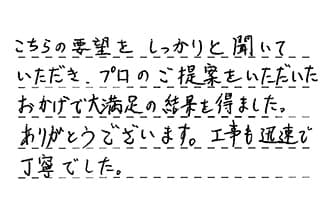 こちらの要望を しっかりと聞いて
いただき、プロのご提案をいただいた
おかげで大満足の結果を得ました。
ありがとうございます。工事も迅速で
丁寧でした。